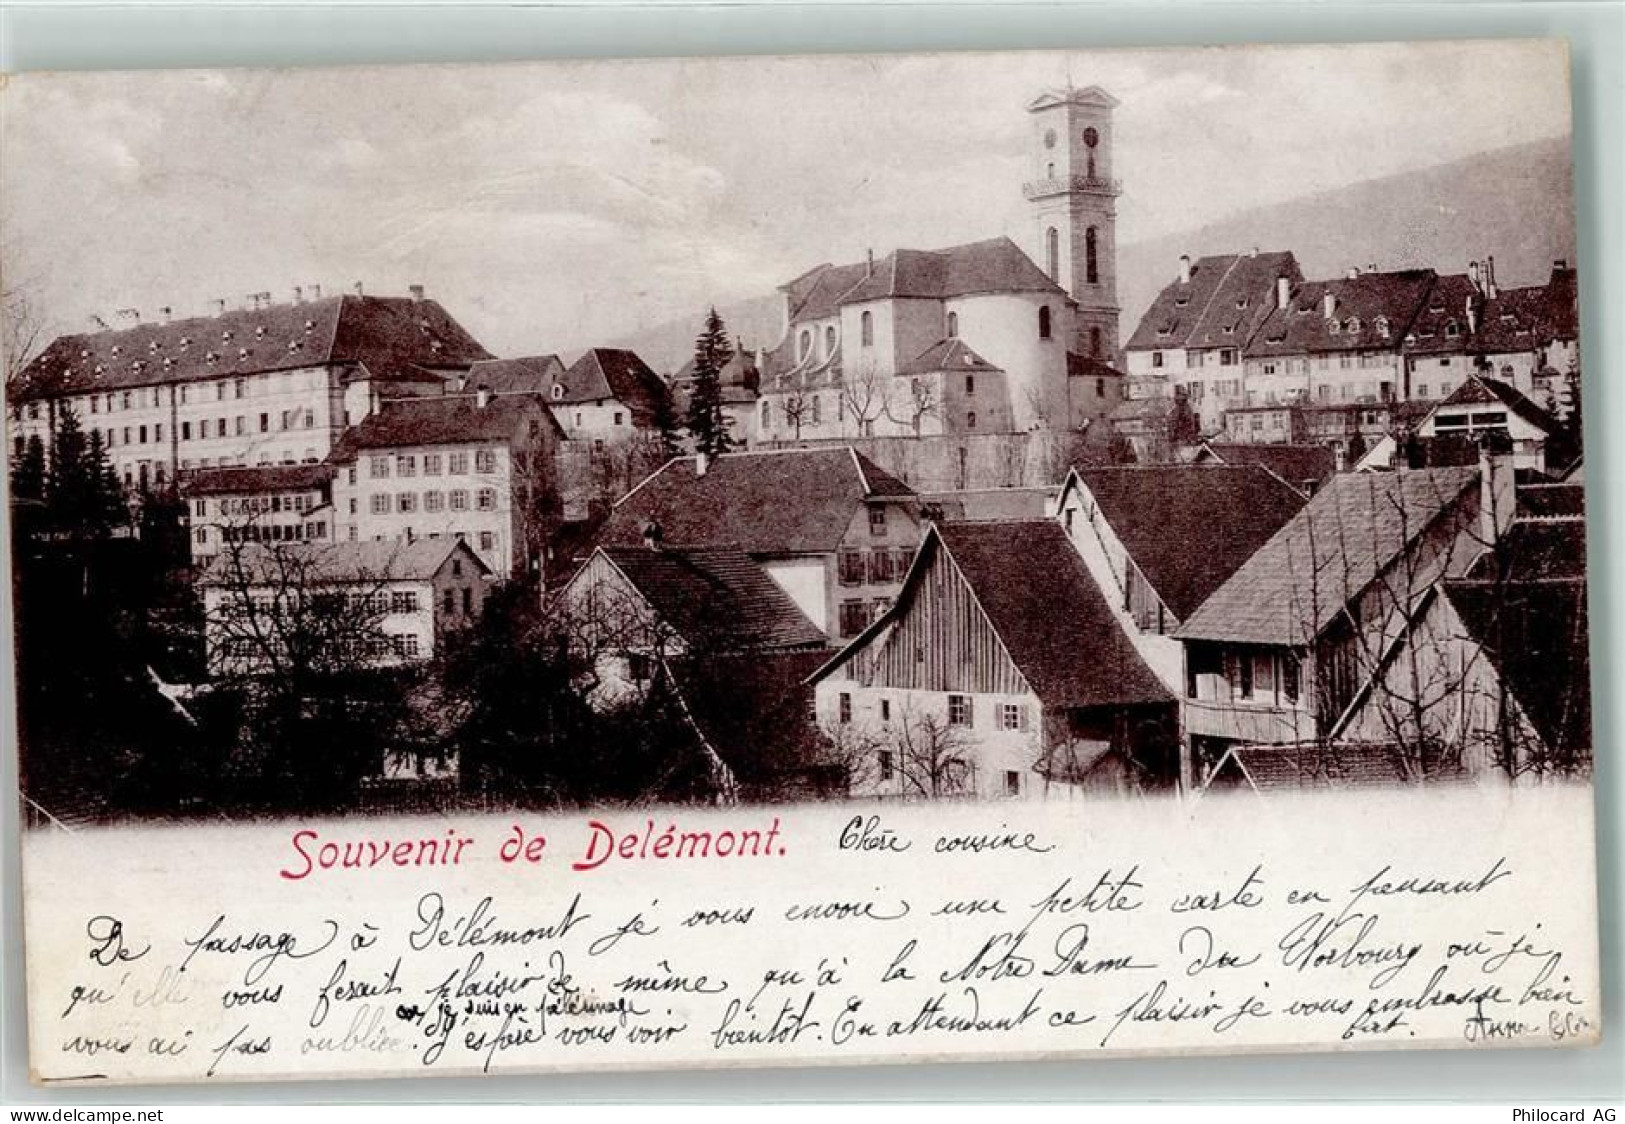 Souvenir de Delémont. Chère cousine.
De passage à Délémont je vous envoie une petite carte en pensant
qu'elle vous ferait plaisir de même qu'à la Notre Dame du Vorbourg où je
car je suis en pélérinage
vous ai pas oubliée. J'éspère vous voir bientôt. En attendant ce plaisir je vous embrasse bien
Anna
www.delcampe.net
Philocard AG